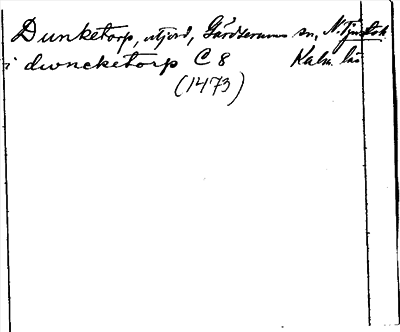 Dunketorp, utjord, Gärdserums sn, N. Tjusts h.
i dwncketorp C 8 Kalm. län
(1473)